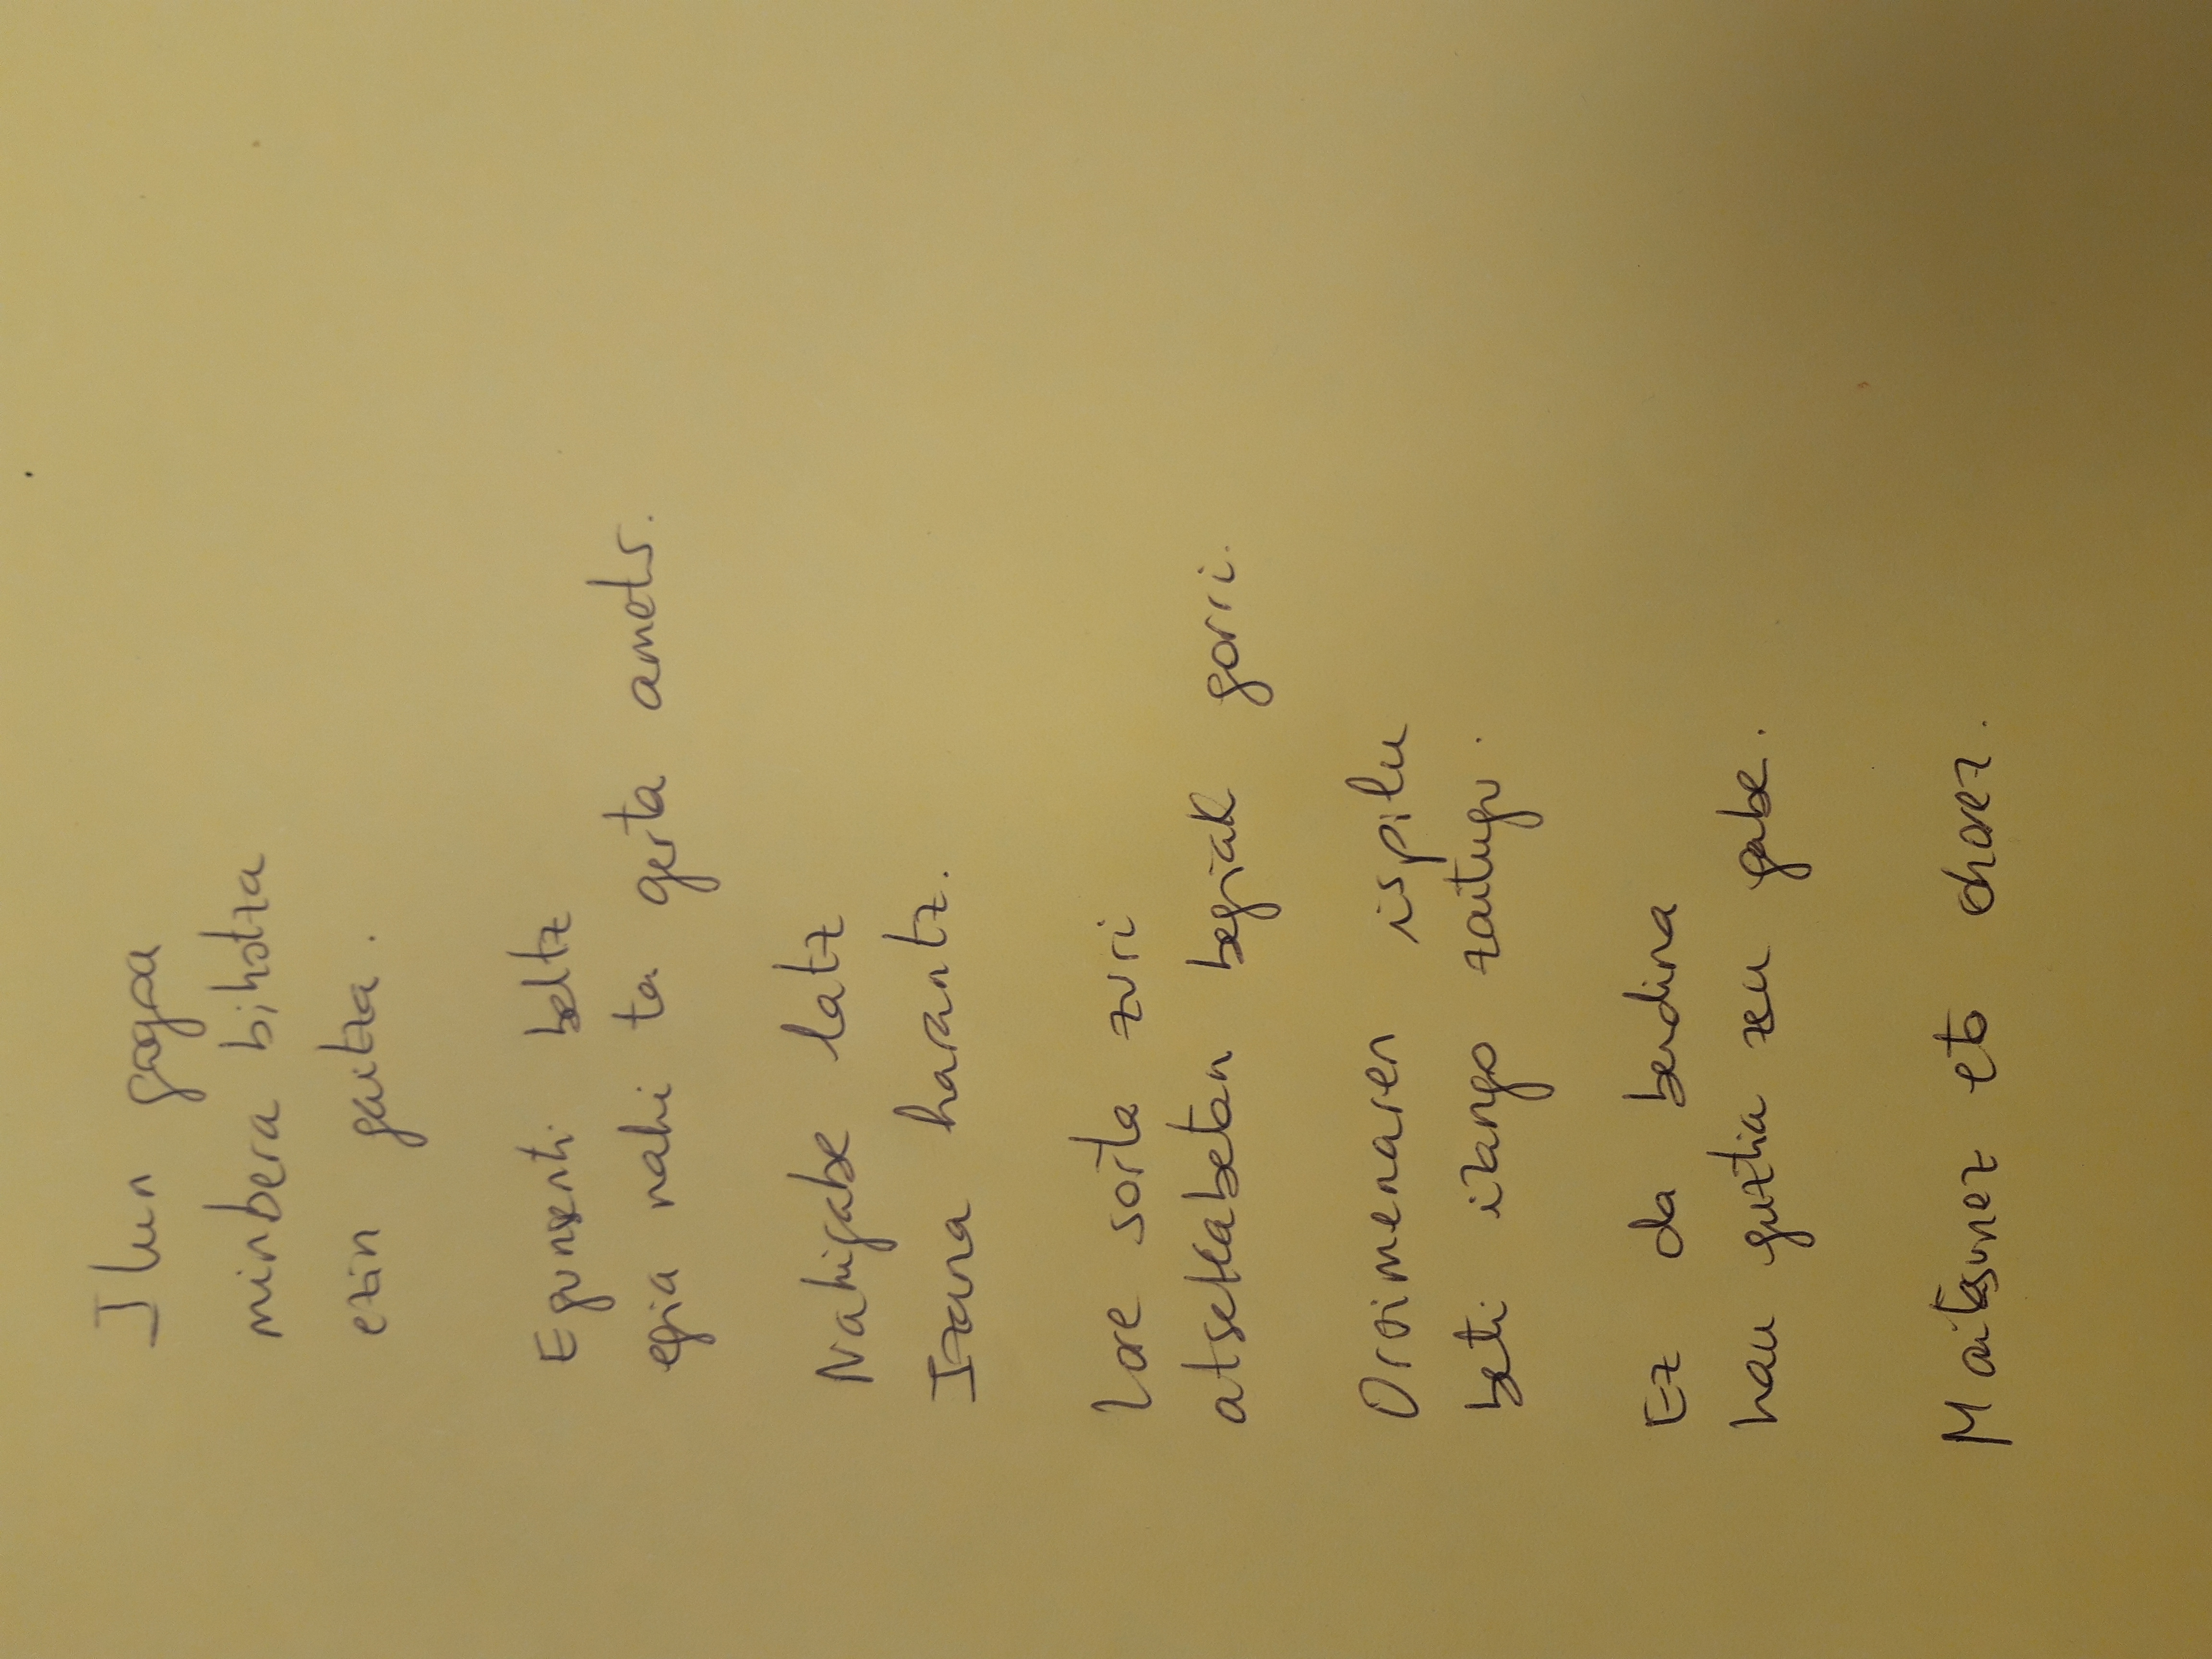 Ilun gogoa
minbera bihotza
ezin gaitza.
Egunsenti beltz
egia nahi ta gerta amets.
Nahigabe latz
Izana harantz.
Lore sorta zuri
atsekabetan begiak gorri.
Oroimenaren ispilu
beti izango zaitugu.
Ez da berdina
hau guztia zeu gabe.
Maitasunez eta ohorez.